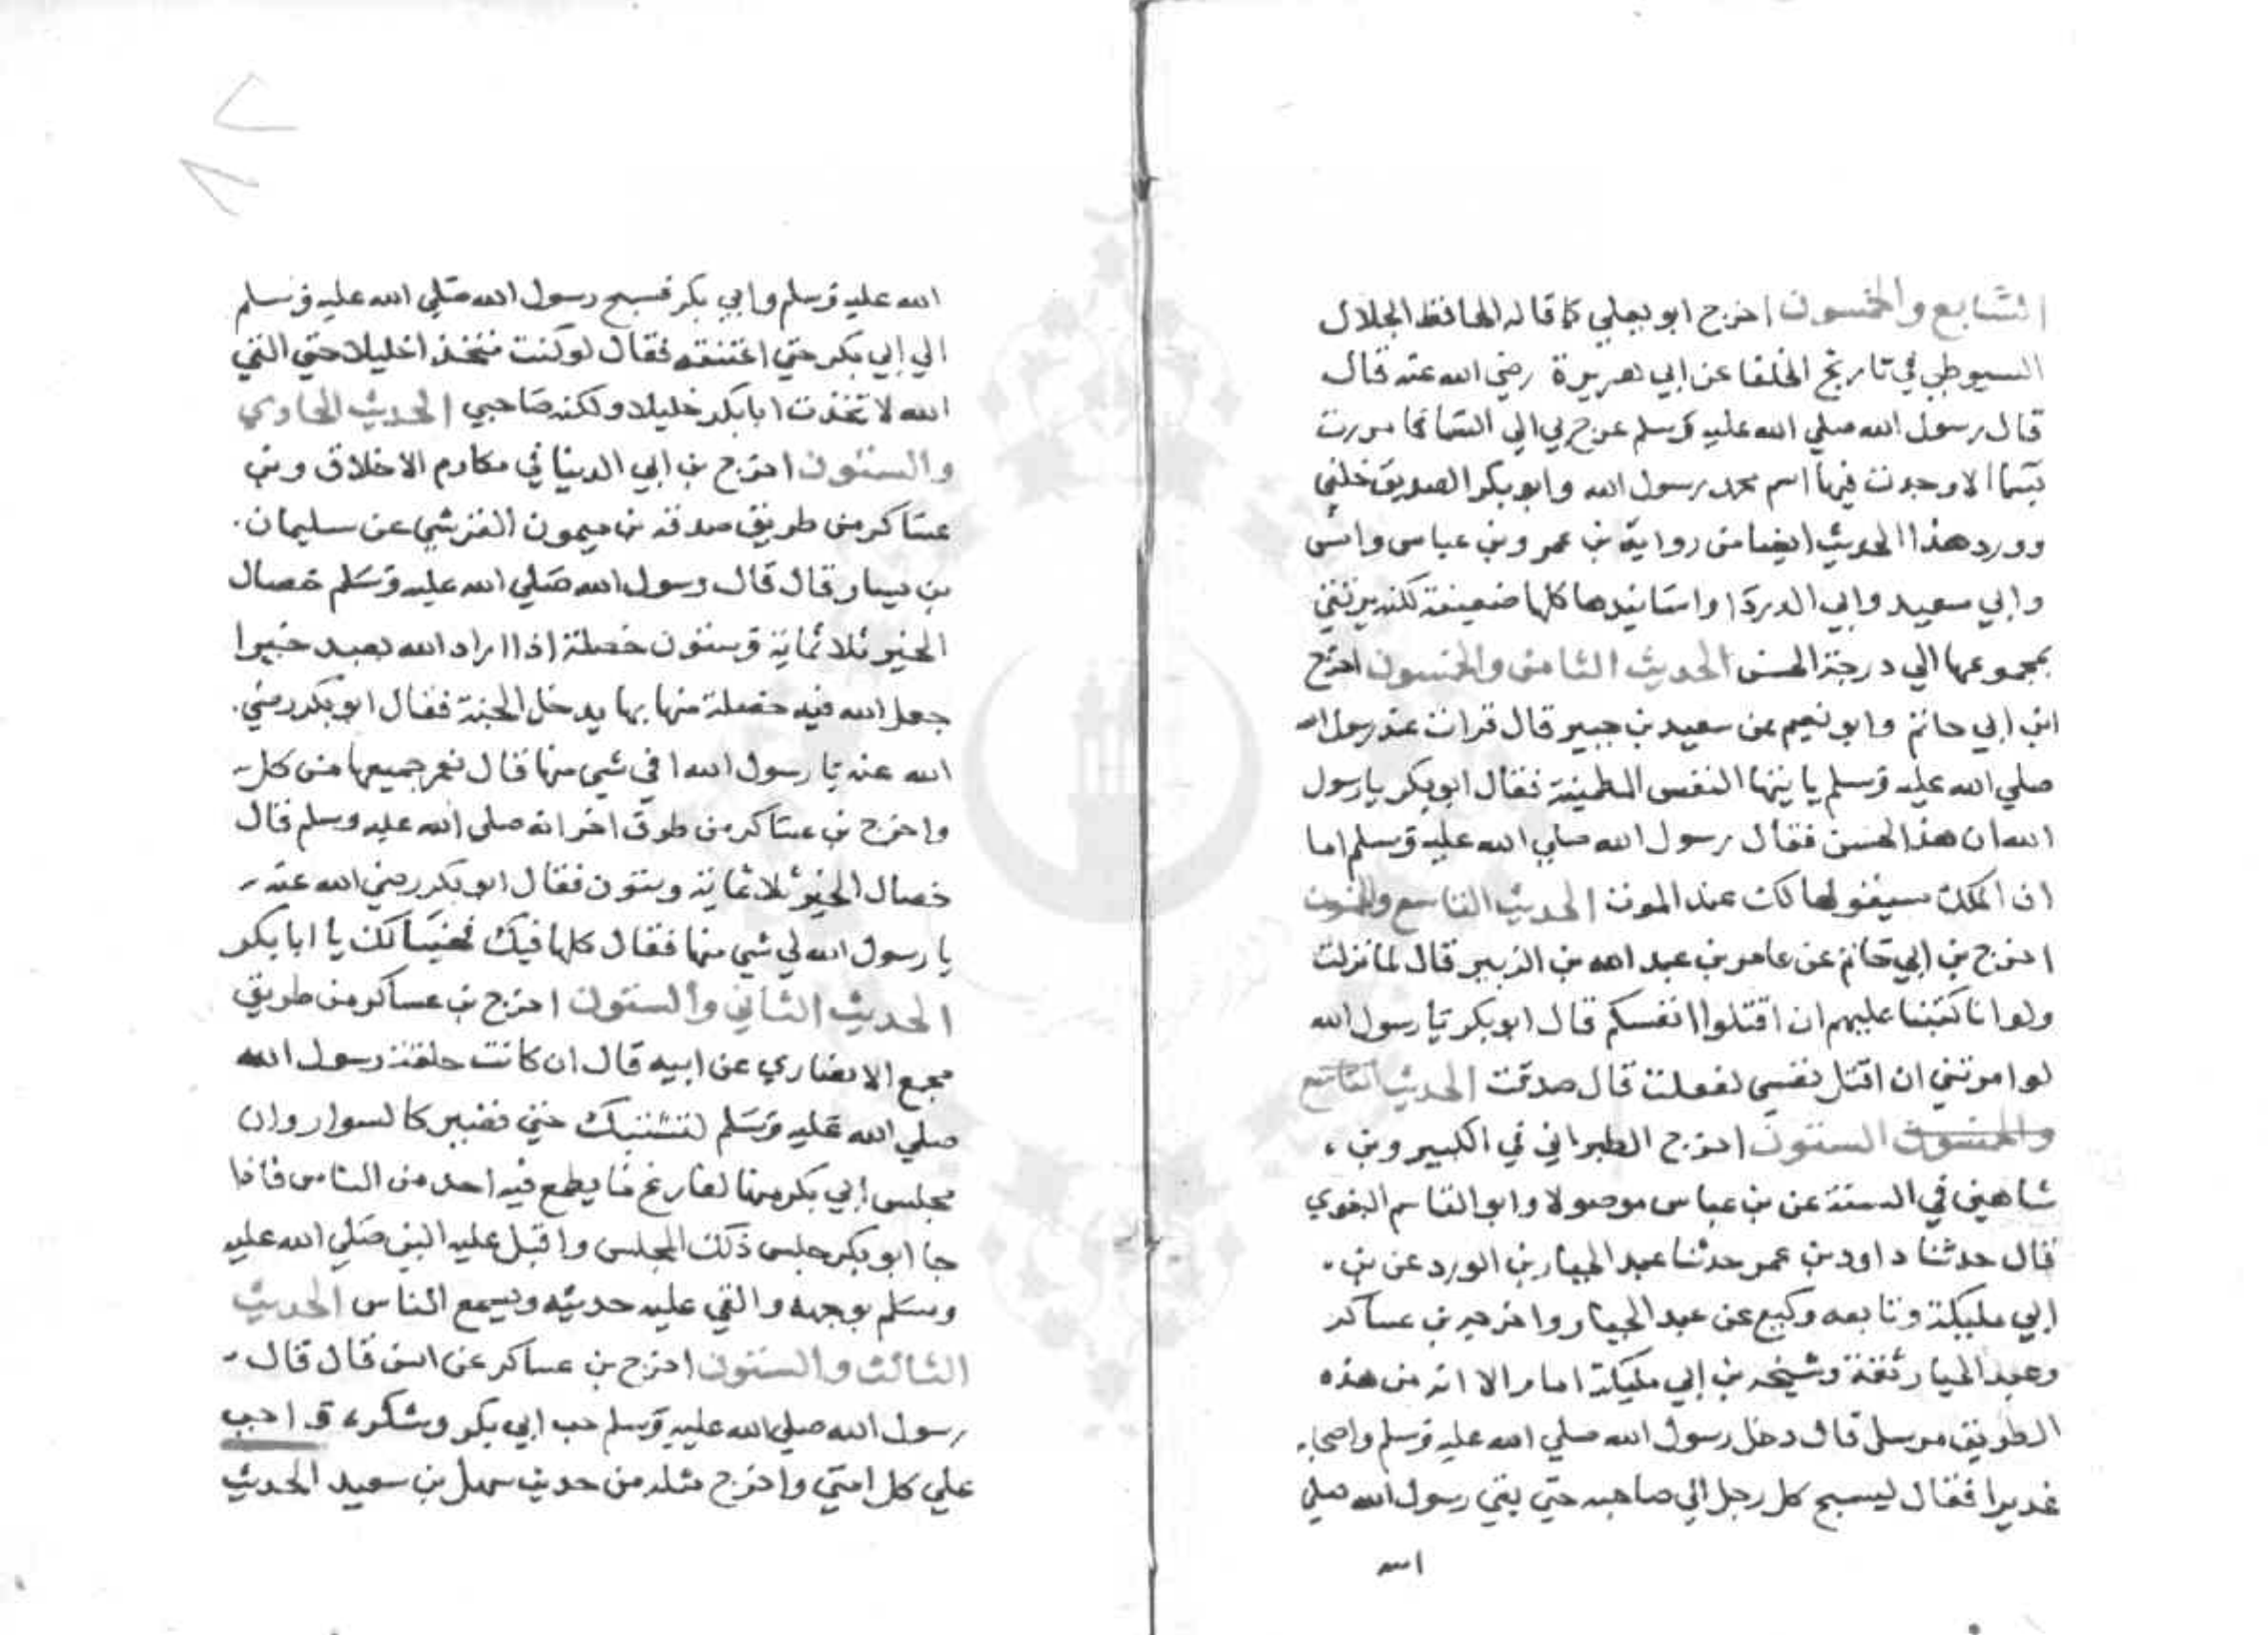 السابع والخمسون اخرج ابو يعلي كما قاله الحافظ الجلال
السيوطي في تاريخ الخلفا عن ابي هريرة رضي الله عنه قال
قال رسول الله صلي الله عليه وسلم عرج بي الي السما فما مررت
بسما الا وجدت فيها اسم محمد رسول الله وابو بكر الصديق خلفي
وورد هذا الحديث ايضا من رواية بن عمر وبن عباس وانس
وابي سعيد وابي الدردا واسانيدها كلها ضعيفة لكنه يرتقي
بمجموعها الي درجة الحسن الحديث الثامن والخمسون اخرج
ابن ابي حاتم وابو نعيم عن سعيد بن جبير قال قرات عند رسول الله
صلي الله عليه وسلم يايتها النفس المطمينة فقال ابو بكر يا رسول
الله ان هذا لحسن فقال رسول الله صلي الله عليه وسلم اما
ان الملك سيقولها لك عند الموت الحديث التاسع والخمسون
اخرج بن ابي حاتم عن عامر بن عبد الله بن الزبير قال لما نزلت
ولو انا كتبنا عليهم ان اقتلوا انفسكم قال ابو بكر يا رسول الله
لو امرتني ان اقتل نفسي لفعلت قال صدقت الحديث التاسع
والخمسون الستون اخرج الطبراني في الكبير وبن
شاهين في السنة عن بن عباس موصولا وابو القاسم البغوي
قال حدثنا داود بن عمر حدثنا عبد الجبار بن الورد عن بن
ابي مليكة وتابعه وكيع عن عبد الجبار واخرجه بن عساكر
وعبد الجبار ثقة وشيخه بن ابي مليكة امام الا انه من هذه
الطريق مرسل قال دخل رسول الله صلي الله عليه وسلم واصحابه
غديرا فقال ليسبح كل رجل الي صاحبه حتي بقي رسول الله صلي
الله
الله عليه وسلم وابي بكر فسبح رسول الله صلي الله عليه وسلم
الي ابي بكر حتي اعتنقه فقال لو كنت متخذا خليلا حتي القي
الله لاتخذت ابا بكر خليلا ولكنه صاحبي الحديث الحاوي
والستون اخرج بن ابي الدنيا في مكارم الاخلاق وبن
عساكر من طريق صدقه بن ميمون القرشي عن سليمان
بن يسار قال قال رسول الله صلي الله عليه وسلم خصال
الخير ثلاثماية وستون خصلة اذا اراد الله بعبد خيرا
جعل الله فيه خصلة منها بها يدخل الجنة فقال ابو بكر رضي
الله عنه يا رسول الله افي شي منها قال نعم جميعها من كل
واخرج بن عساكر من طرق اخر انه صلي الله عليه وسلم قال
خصال الخير ثلاثماية وستون فقال ابو بكر رضي الله عنه
يا رسول الله لي شي منها فقال كلها فيك فهنيا لك يا ابا بكر
الحديث الثاني والستون اخرج بن عساكر من طريق
مجمع الانصاري عن ابيه قال ان كانت حلقة رسول الله
صلي الله عليه وسلم لتشتبك حتي تصير كالسوار وان
مجلس ابي بكر منها لفارغ ما يطمع فيه احد من الناس فاذا
جا ابو بكر جلس ذلك المجلس واقبل عليه النبي صلي الله عليه
وسلم بوجهه والقي عليه حديثه ويسمع الناس الحديث
الثالث والستون اخرج بن عساكر عن انس قال قال
رسول الله صلي الله عليه وسلم حب ابي بكر وشكره واجب
علي كل امتي واخرج مثله من حديث سهل بن سعيد الحديث